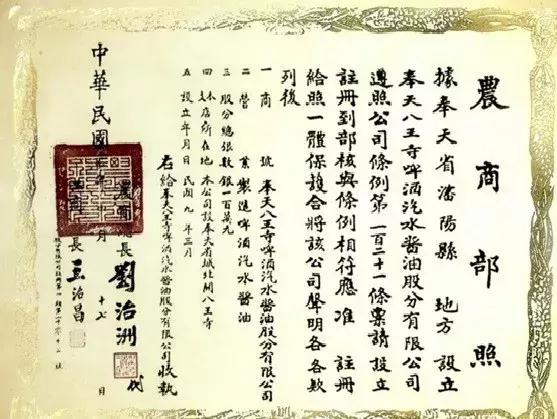 農商部照
據奉天省瀋陽縣 地方 設立
奉天八王寺啤酒汽水醬油股分有限公司
遵照公司條例第一百二十一條禀請 設立
註冊到部核與條例相符應准 註冊
給照一體保護合將該公司聲明各各欵
列後
一 商 號 奉天八王寺啤酒汽水醬油股分有限公司
二 營 業 製造啤酒汽水醬油
三 股分總張數 銀一百萬元
四 本店所在地 本公司設奉天省城北關八王寺
五 設立年月日 民國九年三月
右給奉天八王寺啤酒汽水醬油股分有限公司收執
農商總長 劉治洲 代
長 王治昌
中華民國 年 月 十七 日